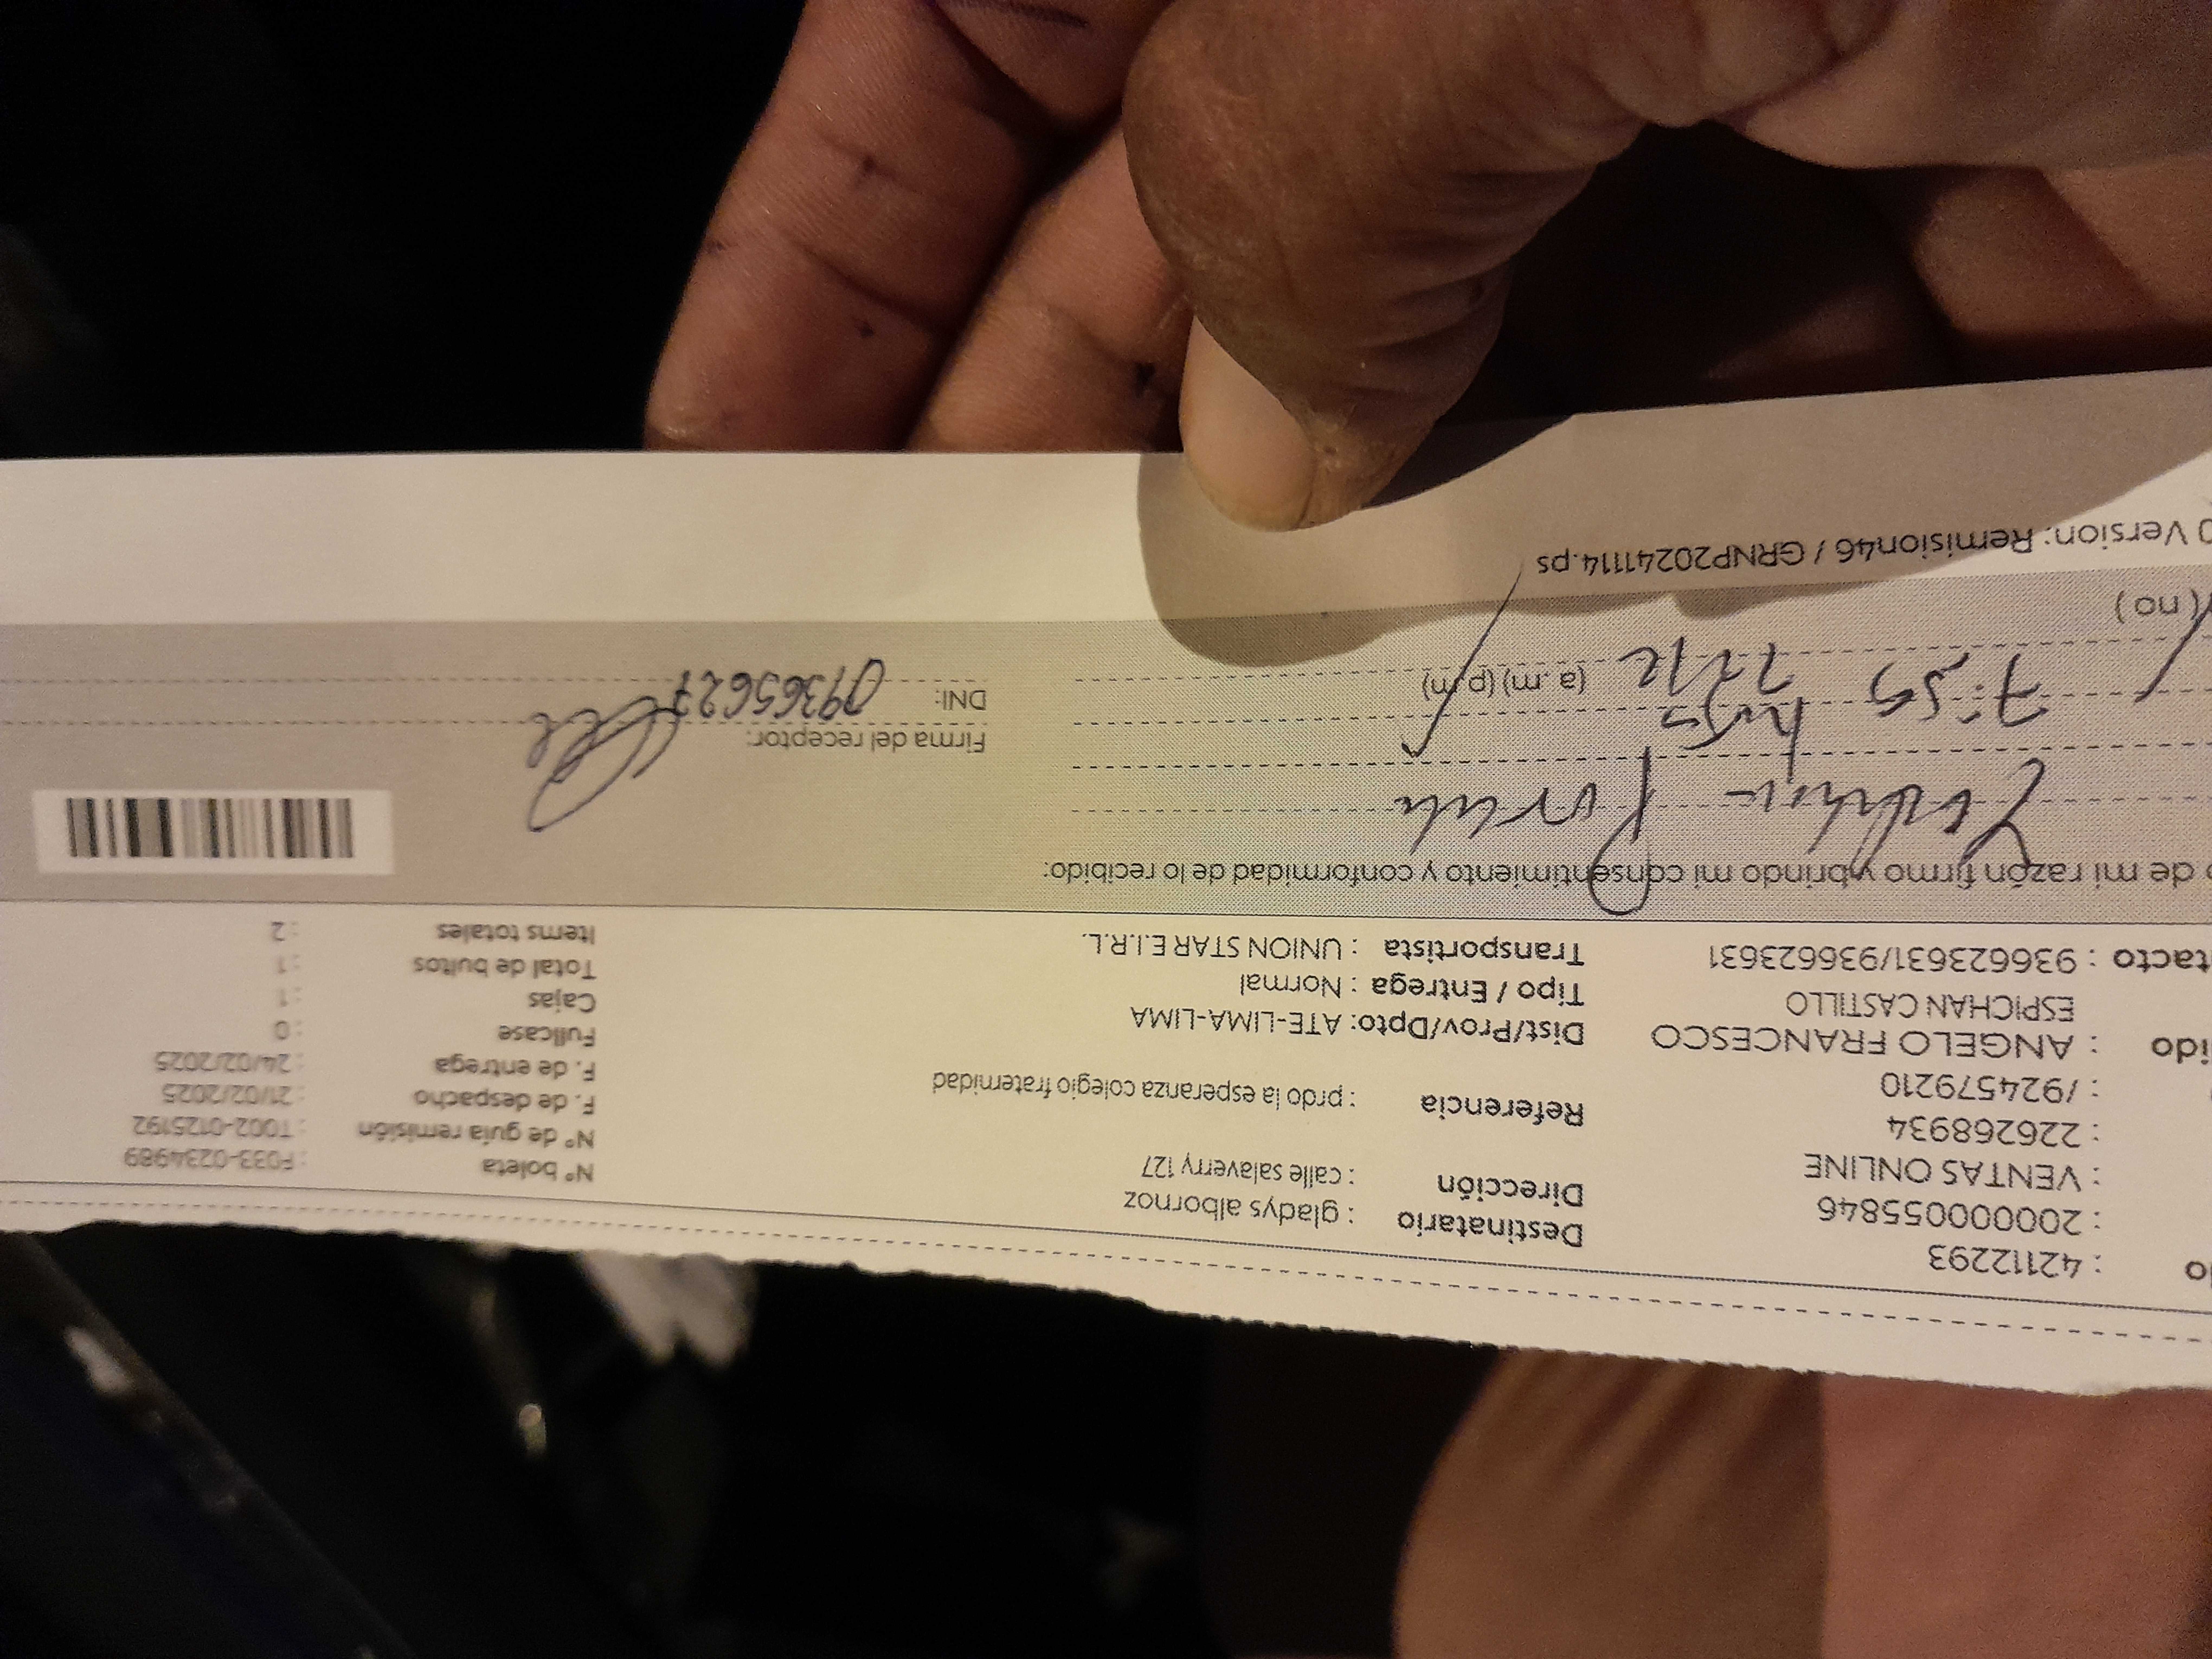 o : 42112293
: 20000055846
: VENTAS ONLINE
: 226268934
: /924579210
ido : ANGELO FRANCESCO
ESPICHAN CASTILLO
tacto : 936623631/936623631
Destinatario : gladys albornoz
Dirección : calle salaverry 127
Referencia : prdo la esperanza colegio fraternidad
Dist/Prov/Dpto: ATE-LIMA-LIMA
Tipo / Entrega : Normal
Transportista : UNION STAR E.I.R.L.
N° boleta : F033-0234989
N° de guía remisión : T002-0125192
F. de despacho : 21/02/2025
F. de entrega : 24/02/2025
Fullcase : 0
Cajas : 1
Total de bultos : 1
Items totales : 2
o de mi razón firmo y brindo mi consentimiento y conformidad de lo recibido:
Firma del receptor:
7:55 (a.m) (p.m)
DNI: 09365627
( no )
0 Version: Remision46 / GRNP20241114.ps